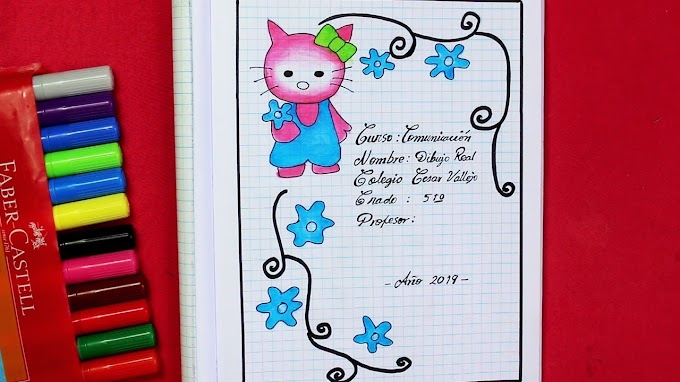 Curso : Comunicación
Nombre : Dibujo Real
Colegio Cesar Vallejo
Grado : 5to
Profesor :
- Año 2019 -
FABER-CASTELL